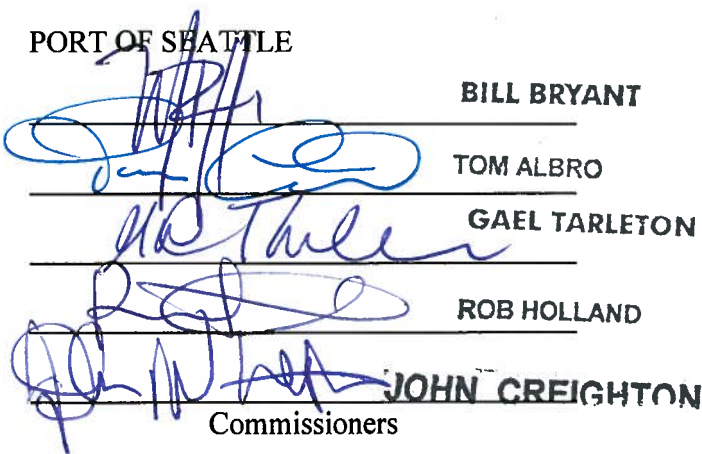 PORT OF SEATTLE
BILL BRYANT
TOM ALBRO
GAEL TARLETON
ROB HOLLAND
JOHN CREIGHTON
Commissioners